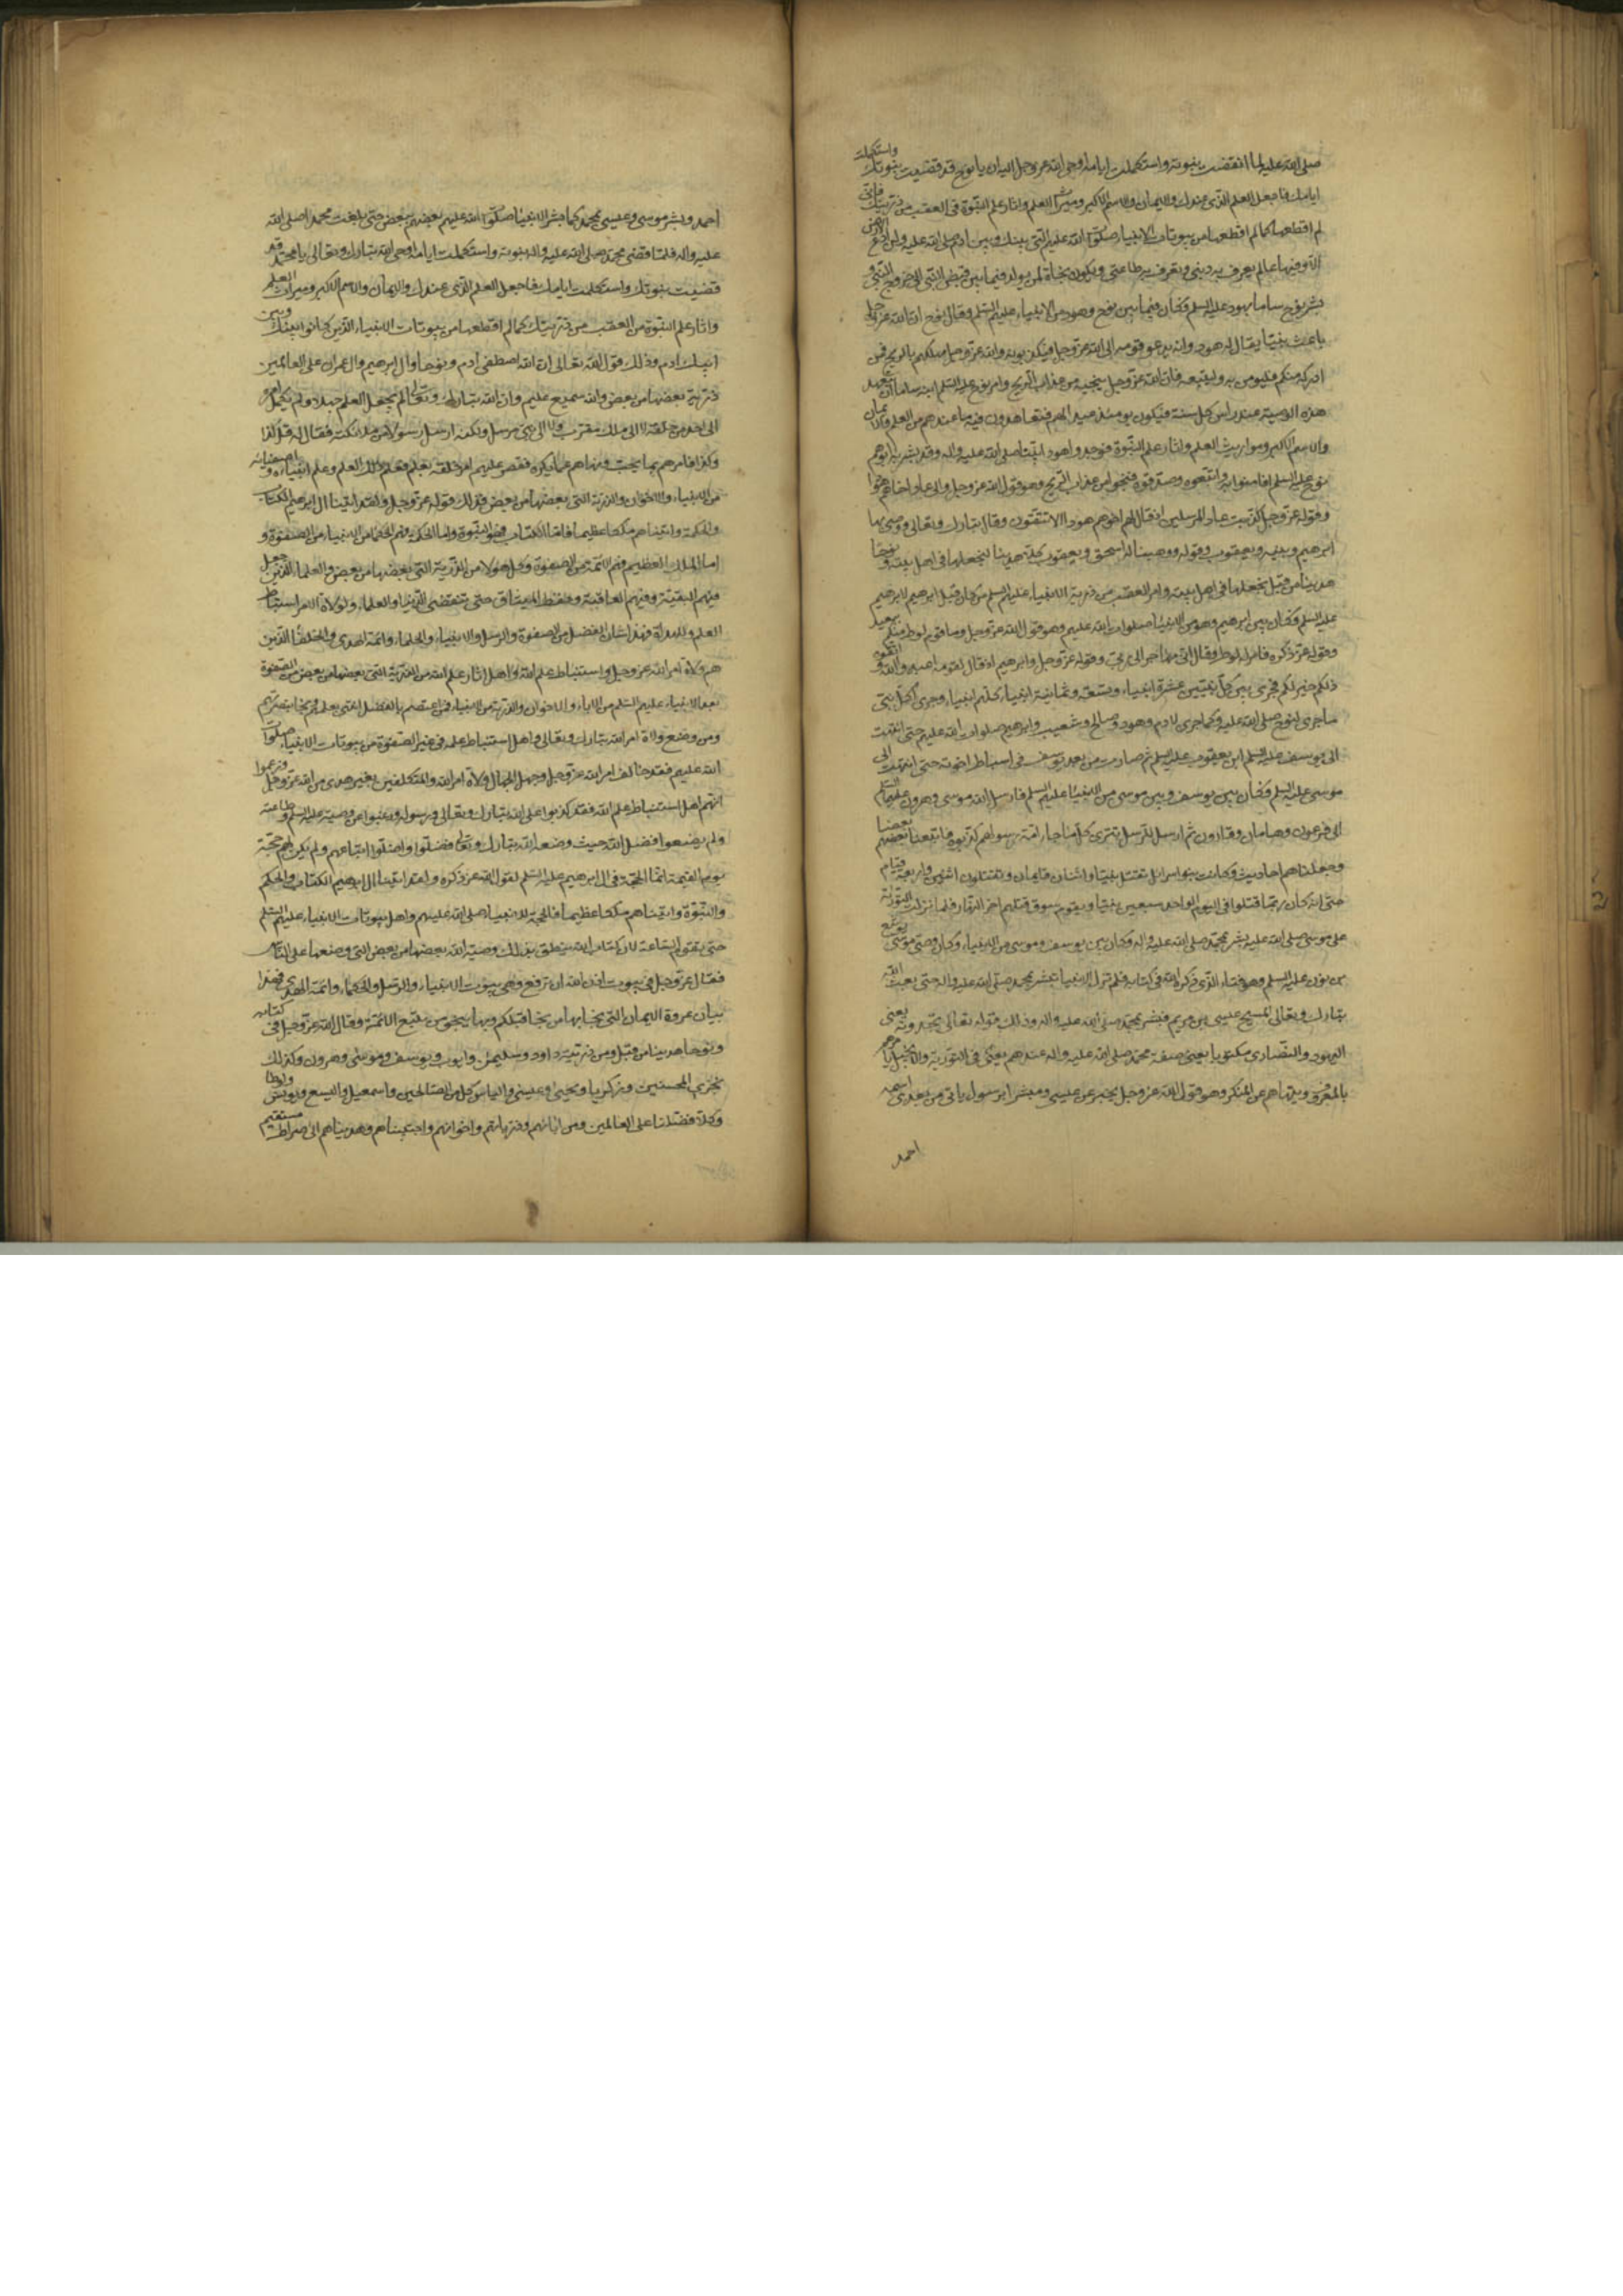 صلى الله عليه لما انقضت نبوته واستكملت ايامه اوحى الله عز وجل اليه ان يا نوح قد قضيت نبوتك واستكملت
ايامك فاجعل العلم الذى عندك والايمان والاسم الاكبر وميراث العلم واثار علم النبوة فى العقب من ذريتك فانى
لم اقطعها كما لم اقطعها من بيوتات الانبياء صلوات الله عليهم التى بينك وبين ادم صلى الله عليه ولن ادع الارض
الا وفيها عالم يعرف به دينى وتعرف به طاعتى ويكون نجاة لمن يولد فيما بين قبض النبى الى خروج النبى و
بشر نوح ساما بهود عليه السلم وكان فيما بين نوح وهود من الانبياء عليهم السلم وقال نوح ان الله عز وجل
باعث نبيا يقال له هود وانه يدعو قومه الى الله عز وجل فيكذبونه والله عز وجل مهلكهم بالريح فمن
ادركه منكم فليومن به وليتبعه فان الله عز وجل ينجيه من عذاب الريح وامر نوح عليه السلم ابنه ساما ان يتعاهد
هذه الوصية عند راس كل سنة فيكون يومئذ عيد الهم فيتعاهدون فيه ما عندهم من العلم والايمان
والاسم الاكبر ومواريث العلم واثار علم النبوة فوجدوا هودا نبيا صلى الله عليه واله وقد بشر به ابوهم
نوح عليه السلم فامنوا به واتبعوه وصدقوه فنجوا من عذاب الريح وهو قول الله عز وجل والى عاد اخاهم هودا
وقوله عز وجل كذبت عاد المرسلين اذ قال لهم اخوهم هود الا تتقون وقال تبارك وتعالى ووصى بها
ابرهيم بنيه ويعقوب وقوله ووهبنا له اسحق ويعقوب كلا هدينا لنجعلها فى اهل بيته ونوحا
هدينا من قبل لنجعلها فى اهل بيته وامر العقب من ذرية الانبياء عليهم السلم من كان قبل ابرهيم لابرهيم
عليه السلم وكان بين ابرهيم وهود من الانبياء صلوات الله عليهم وهو قول الله عز وجل وما قوم لوط منكم ببعيد
وقوله عز ذكره فامن له لوط وقال انى مهاجر الى ربى وقوله عز وجل وابرهيم اذ قال لقومه اعبدوا الله واتقوه
ذلكم خير لكم فجرى بين كل نبيين عشرة انبياء وتسعة وثمانية انبياء كلهم انبياء وجرى لكل نبى
ما جرى لنوح صلى الله عليه وكما جرى لادم وهود وصالح وشعيب وابرهيم صلوات الله عليهم حتى انتهت
الى يوسف عليه السلم ابن يعقوب عليه السلم ثم صارت من بعد يوسف فى اسباط اخوته حتى انتهت الى
موسى عليه السلم فكان بين يوسف وبين موسى من الانبياء عليهم السلم فارسل الله موسى وهرون عليهما السلم
الى فرعون وهامان وقارون ثم ارسل الرسل تترى كلما جاء امة رسولهم كذبوه فاتبعنا بعضهم بعضا
وجعلناهم احاديث وكانت بنو اسرائيل تقتل نبيا واثنان قائمان وتقتلون اثنين واربعة قيام
حتى انه كان ربما قتلوا فى اليوم الواحد سبعين نبيا ويقوم سوق قتلهم اخر النهار فلما انزلت التورية
على موسى صلى الله عليه بشر بمحمد صلى الله عليه واله وكان بين يوسف وموسى من الانبياء وكان وصى موسى يوشع
بن نون عليه السلم وهو فتاه الذى ذكره الله فى كتابه فلم تزل الانبياء تبشر بمحمد صلى الله عليه واله حتى بعث الله
تبارك وتعالى المسيح عيسى بن مريم فبشر بمحمد صلى الله عليه واله وذلك قوله تعالى يجدونه يعنى
اليهود والنصارى مكتوبا يعنى صفة محمد صلى الله عليه واله عندهم يعنى فى التورية والانجيل يأمرهم
بالمعروف وينهاهم عن المنكر وهو قول الله عز وجل يخبر عن عيسى ومبشرا برسول ياتى من بعدى اسمه
احمد
احمد وبشر موسى وعيسى بمحمد كما بشر الانبياء صلوات الله عليهم بعضهم ببعض حتى بلغت محمدا صلى الله
عليه واله فلما قضى محمد صلى الله عليه واله نبوته واستكملت ايامه اوحى الله تبارك وتعالى يا محمد قد
قضيت نبوتك واستكملت ايامك فاجعل العلم الذى عندك والايمان والاسم الاكبر وميراث العلم
واثار علم النبوة من العقب من ذريتك كما لم اقطعها من بيوتات الانبياء الذين كانوا بينك وبين
ابيك ادم وذلك قول الله تعالى ان الله اصطفى ادم ونوحا وال ابرهيم وال عمران على العالمين
ذرية بعضها من بعض والله سميع عليم وان الله تبارك وتعالى لم يجعل العلم جهلا ولم يكل امره
الى احد من خلقه لا الى ملك مقرب ولا الى نبى مرسل ولكنه ارسل رسولا من ملائكته فقال له قل كذا
وكذا فامرهم بما يحب ونهاهم عما يكره فقص عليهم امر خلقه بعلم فعلم ذلك العلم وعلم انبياءه واصفيائه
من الانبياء والاخوان والذرية التى بعضها من بعض فذلك قوله عز وجل ولقد اتينا ال ابرهيم الكتاب
والحكمة واتيناهم ملكا عظيما فاما الكتاب فهو النبوة واما الحكمة فهم الحكماء من الانبياء من الصفوة و
اما الملك العظيم فهم الائمة من الصفوة وكل هولاء من الذرية التى بعضها من بعض والعلماء الذين جعل
فيهم البقية وفيهم العاقبة وحفظ الميثاق حتى تنقضى الدنيا والعلماء ولولاة الامر استنباط
العلم وللهداة فهذا شان الفضل من الصفوة والرسل والانبياء والحكماء وائمة الهدى والخلفاء الذين
هم ولاة امر الله عز وجل واستنباط علم الله واهل اثار علم الله من الذرية التى بعضها من بعض من الصفوة
بعد الانبياء عليهم السلم من الاباء والاخوان والذرية من الانبياء فمن اعتصم بالفضل انتهى بعلمهم ونجا بنصرتهم
ومن وضع ولاة امر الله تبارك وتعالى واهل استنباط علمه فى غير الصفوة من بيوتات الانبياء صلوات
الله عليهم فقد خالف امر الله عز وجل وجعل الجهال ولاة امر الله والمتكلفين بغير هدى من الله عز وجل وزعموا
انهم اهل استنباط علم الله فقد كذبوا على الله تبارك وتعالى ورسوله ورغبوا عن وصيه عليه السلم وطاعته
ولم يضعوا فضل الله حيث وضعه الله تبارك وتعالى فضلوا واضلوا اتباعهم ولم يكن لهم حجة
يوم القيمة انما الحجة فى ال ابرهيم عليه السلم لقول الله عز ذكره ولقد اتينا ال ابرهيم الكتاب والحكم
والنبوة واتيناهم ملكا عظيما فالحجة الانبياء صلى الله عليهم واهل بيوتات الانبياء عليهم السلم
حتى تقوم الساعة لان كتاب الله ينطق بذلك وصية الله بعضها من بعض التى وضعها على الناس
فقال عز وجل فى بيوت اذن الله ان ترفع وهى بيوت الانبياء والرسل والحكماء وائمة الهدى فهذا
بيان عروة الايمان التى نجا بها من نجا قبلكم وبها ينجو من يتبع الائمة وقال الله عز وجل فى كتابه
ونوحا هدينا من قبل ومن ذريته داود وسليمن وايوب ويوسف وموسى وهرون وكذلك
نجزى المحسنين وزكريا ويحيى وعيسى والياس كل من الصالحين واسمعيل واليسع ويونس ولوطا
وكلا فضلنا على العالمين ومن ابائهم وذرياتهم واخوانهم واجتبيناهم وهديناهم الى صراط مستقيم